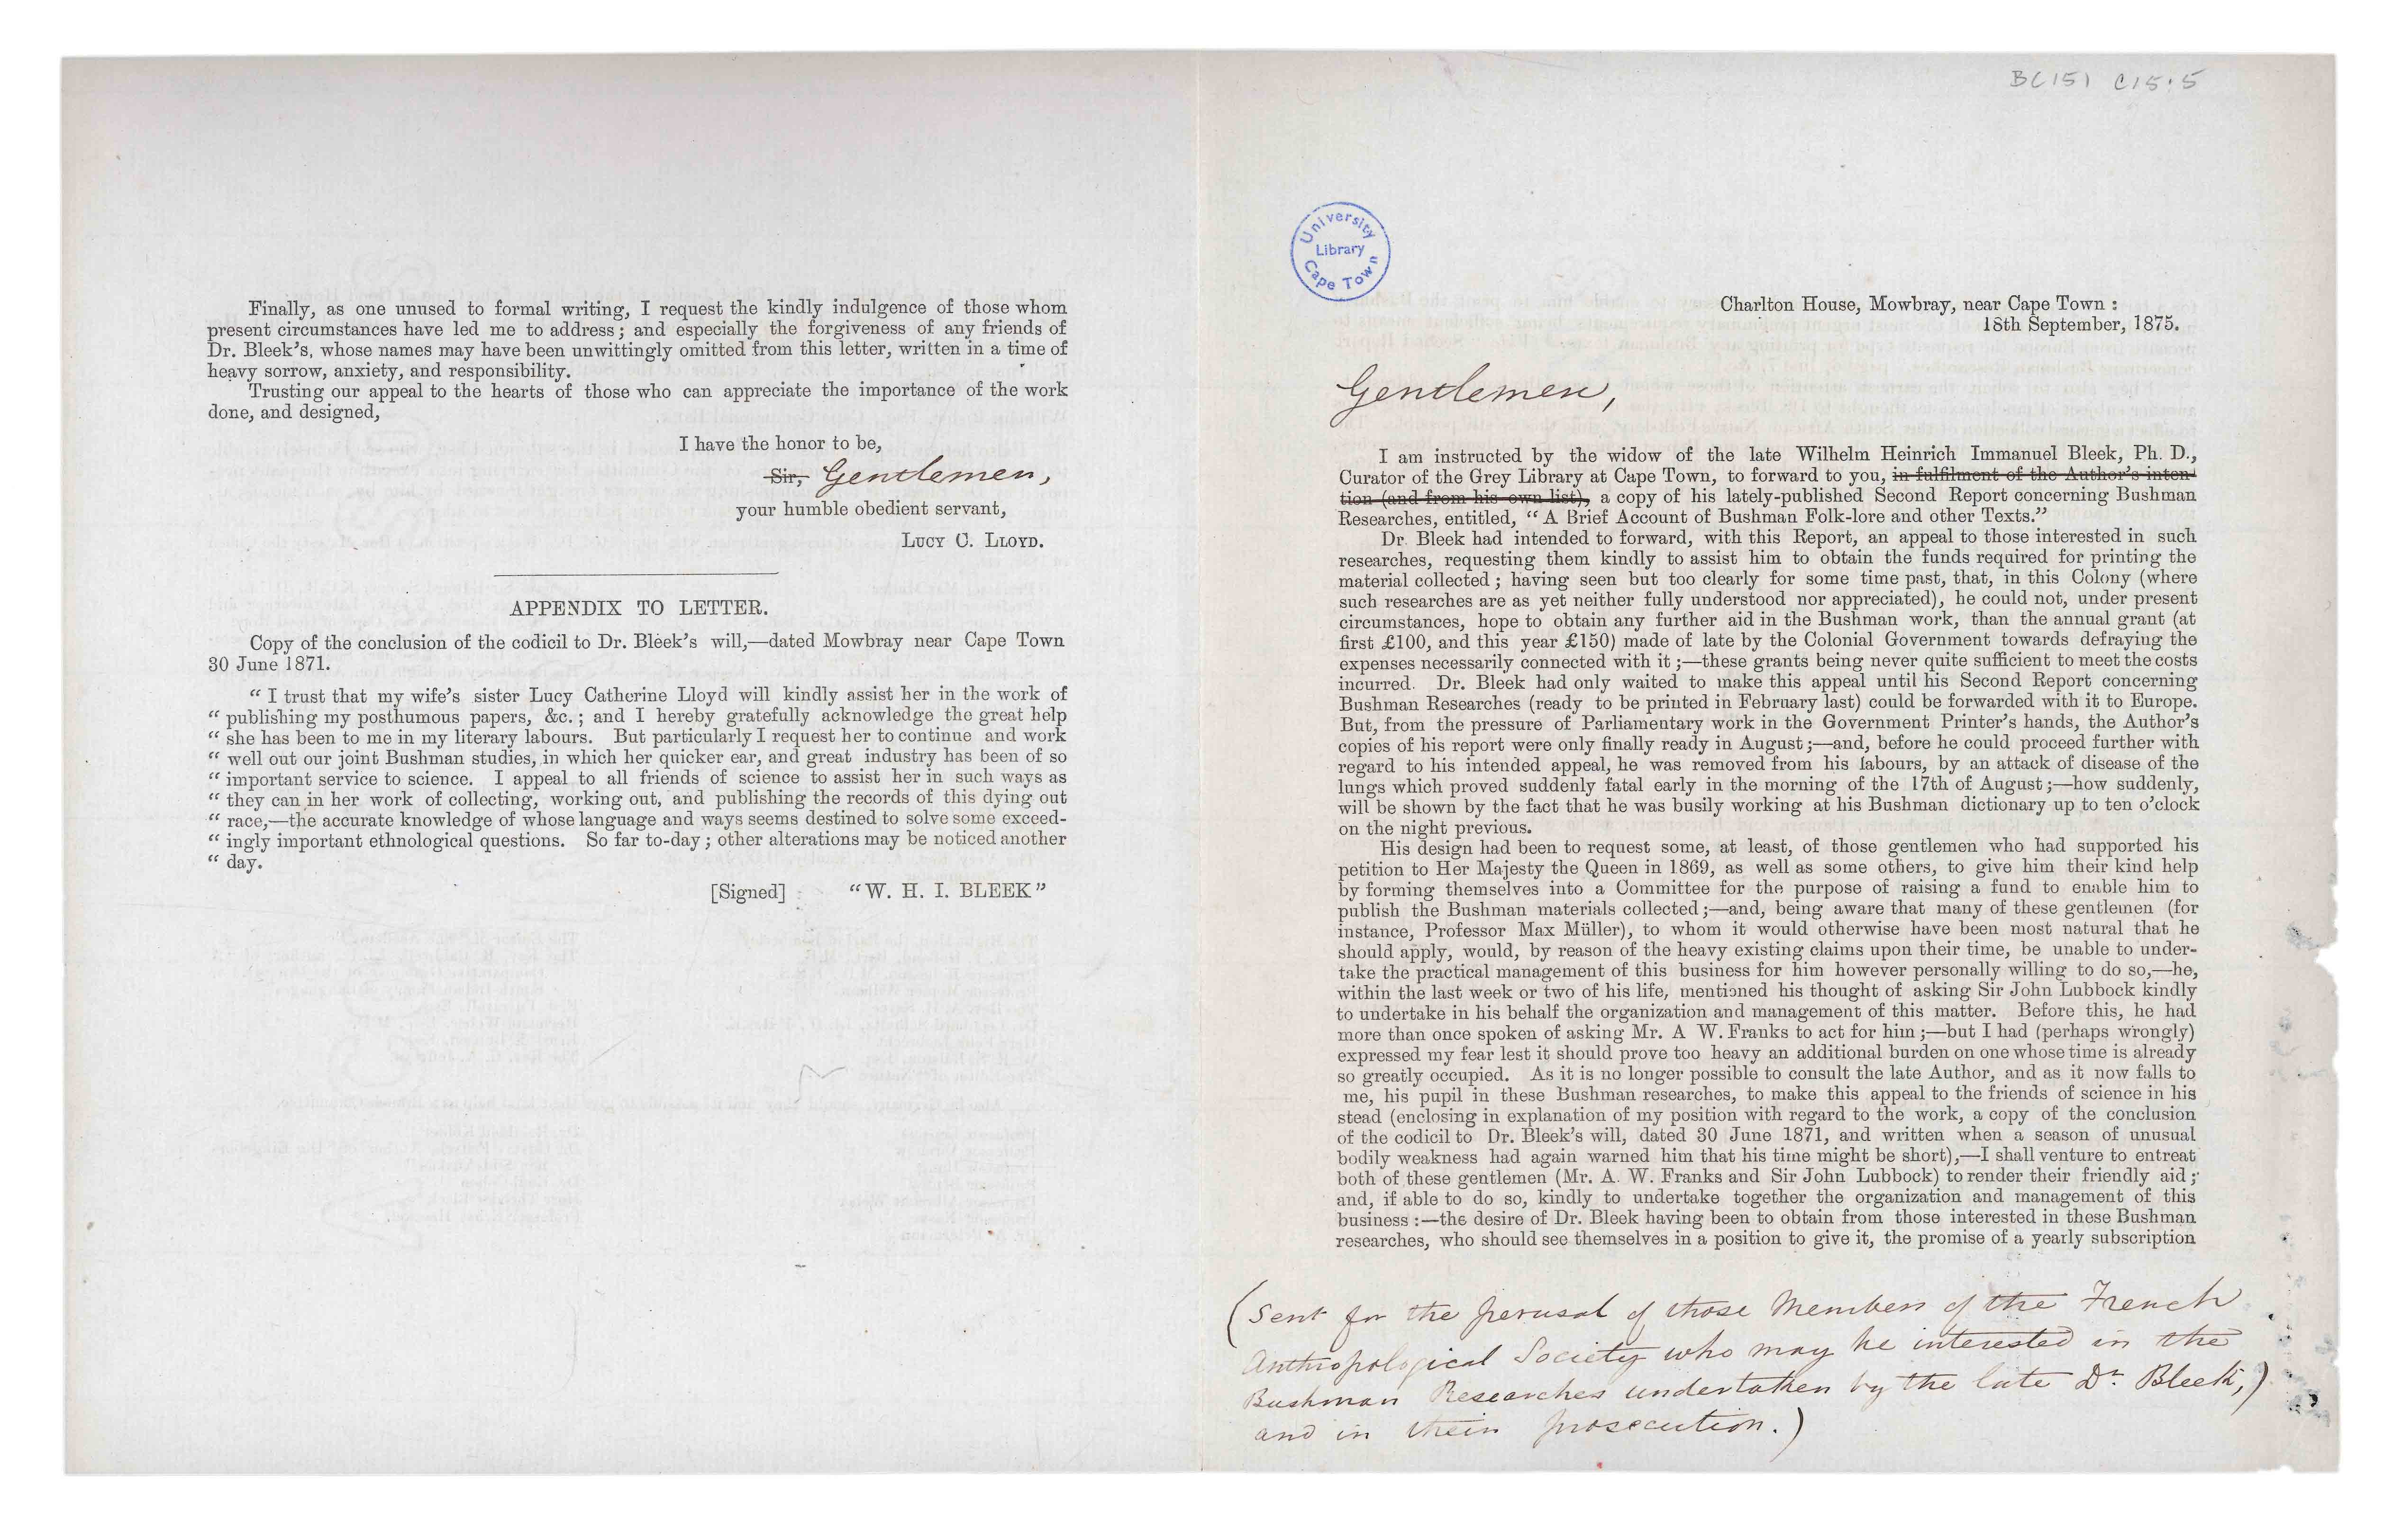 Finally, as one unused to formal writing, I request the kindly indulgence of those whom
present circumstances have led me to address; and especially the forgiveness of any friends of
Dr. Bleek's, whose names may have been unwittingly omitted from this letter, written in a time of
heavy sorrow, anxiety, and responsibility.
Trusting our appeal to the hearts of those who can appreciate the importance of the work
done, and designed,
I have the honor to be,
Sir, Gentlemen,
your humble obedient servant,
LUCY C. LLOYD.
APPENDIX TO LETTER.
Copy of the conclusion of the codicil to Dr. Bleek's will,—dated Mowbray near Cape Town
30 June 1871.
“ I trust that my wife's sister Lucy Catherine Lloyd will kindly assist her in the work of
“ publishing my posthumous papers, &c.; and I hereby gratefully acknowledge the great help
“ she has been to me in my literary labours. But particularly I request her to continue and work
“ well out our joint Bushman studies, in which her quicker ear, and great industry has been of so
“ important service to science. I appeal to all friends of science to assist her in such ways as
“ they can in her work of collecting, working out, and publishing the records of this dying out
“ race,—the accurate knowledge of whose language and ways seems destined to solve some exceed-
“ ingly important ethnological questions. So far to-day; other alterations may be noticed another
“ day.
[Signed] “W. H. I. BLEEK”
BC151 C15.5
University Library Cape Town
Charlton House, Mowbray, near Cape Town :
18th September, 1875.
Gentlemen,
I am instructed by the widow of the late Wilhelm Heinrich Immanuel Bleek, Ph. D.,
Curator of the Grey Library at Cape Town, to forward to you, in fulfilment of the Author's inten-
tion (and from his own list), a copy of his lately-published Second Report concerning Bushman
Researches, entitled, “A Brief Account of Bushman Folk-lore and other Texts.”
Dr. Bleek had intended to forward, with this Report, an appeal to those interested in such
researches, requesting them kindly to assist him to obtain the funds required for printing the
material collected; having seen but too clearly for some time past, that, in this Colony (where
such researches are as yet neither fully understood nor appreciated), he could not, under present
circumstances, hope to obtain any further aid in the Bushman work, than the annual grant (at
first £100, and this year £150) made of late by the Colonial Government towards defraying the
expenses necessarily connected with it;—these grants being never quite sufficient to meet the costs
incurred. Dr. Bleek had only waited to make this appeal until his Second Report concerning
Bushman Researches (ready to be printed in February last) could be forwarded with it to Europe.
But, from the pressure of Parliamentary work in the Government Printer's hands, the Author's
copies of his report were only finally ready in August;—and, before he could proceed further with
regard to his intended appeal, he was removed from his labours, by an attack of disease of the
lungs which proved suddenly fatal early in the morning of the 17th of August;—how suddenly,
will be shown by the fact that he was busily working at his Bushman dictionary up to ten o'clock
on the night previous.
His design had been to request some, at least, of those gentlemen who had supported his
petition to Her Majesty the Queen in 1869, as well as some others, to give him their kind help
by forming themselves into a Committee for the purpose of raising a fund to enable him to
publish the Bushman materials collected;—and, being aware that many of these gentlemen (for
instance, Professor Max Müller), to whom it would otherwise have been most natural that he
should apply, would, by reason of the heavy existing claims upon their time, be unable to under-
take the practical management of this business for him however personally willing to do so,—he,
within the last week or two of his life, mentioned his thought of asking Sir John Lubbock kindly
to undertake in his behalf the organization and management of this matter. Before this, he had
more than once spoken of asking Mr. A W. Franks to act for him;—but I had (perhaps wrongly)
expressed my fear lest it should prove too heavy an additional burden on one whose time is already
so greatly occupied. As it is no longer possible to consult the late Author, and as it now falls to
me, his pupil in these Bushman researches, to make this appeal to the friends of science in his
stead (enclosing in explanation of my position with regard to the work, a copy of the conclusion
of the codicil to Dr. Bleek's will, dated 30 June 1871, and written when a season of unusual
bodily weakness had again warned him that his time might be short),—I shall venture to entreat
both of these gentlemen (Mr. A. W. Franks and Sir John Lubbock) to render their friendly aid;
and, if able to do so, kindly to undertake together the organization and management of this
business :—the desire of Dr. Bleek having been to obtain from those interested in these Bushman
researches, who should see themselves in a position to give it, the promise of a yearly subscription
(Sent for the perusal of those Members of the French
Anthropological Society who may be interested in the
Bushman Researches undertaken by the late Dr. Bleek,)
and in their prosecution.)